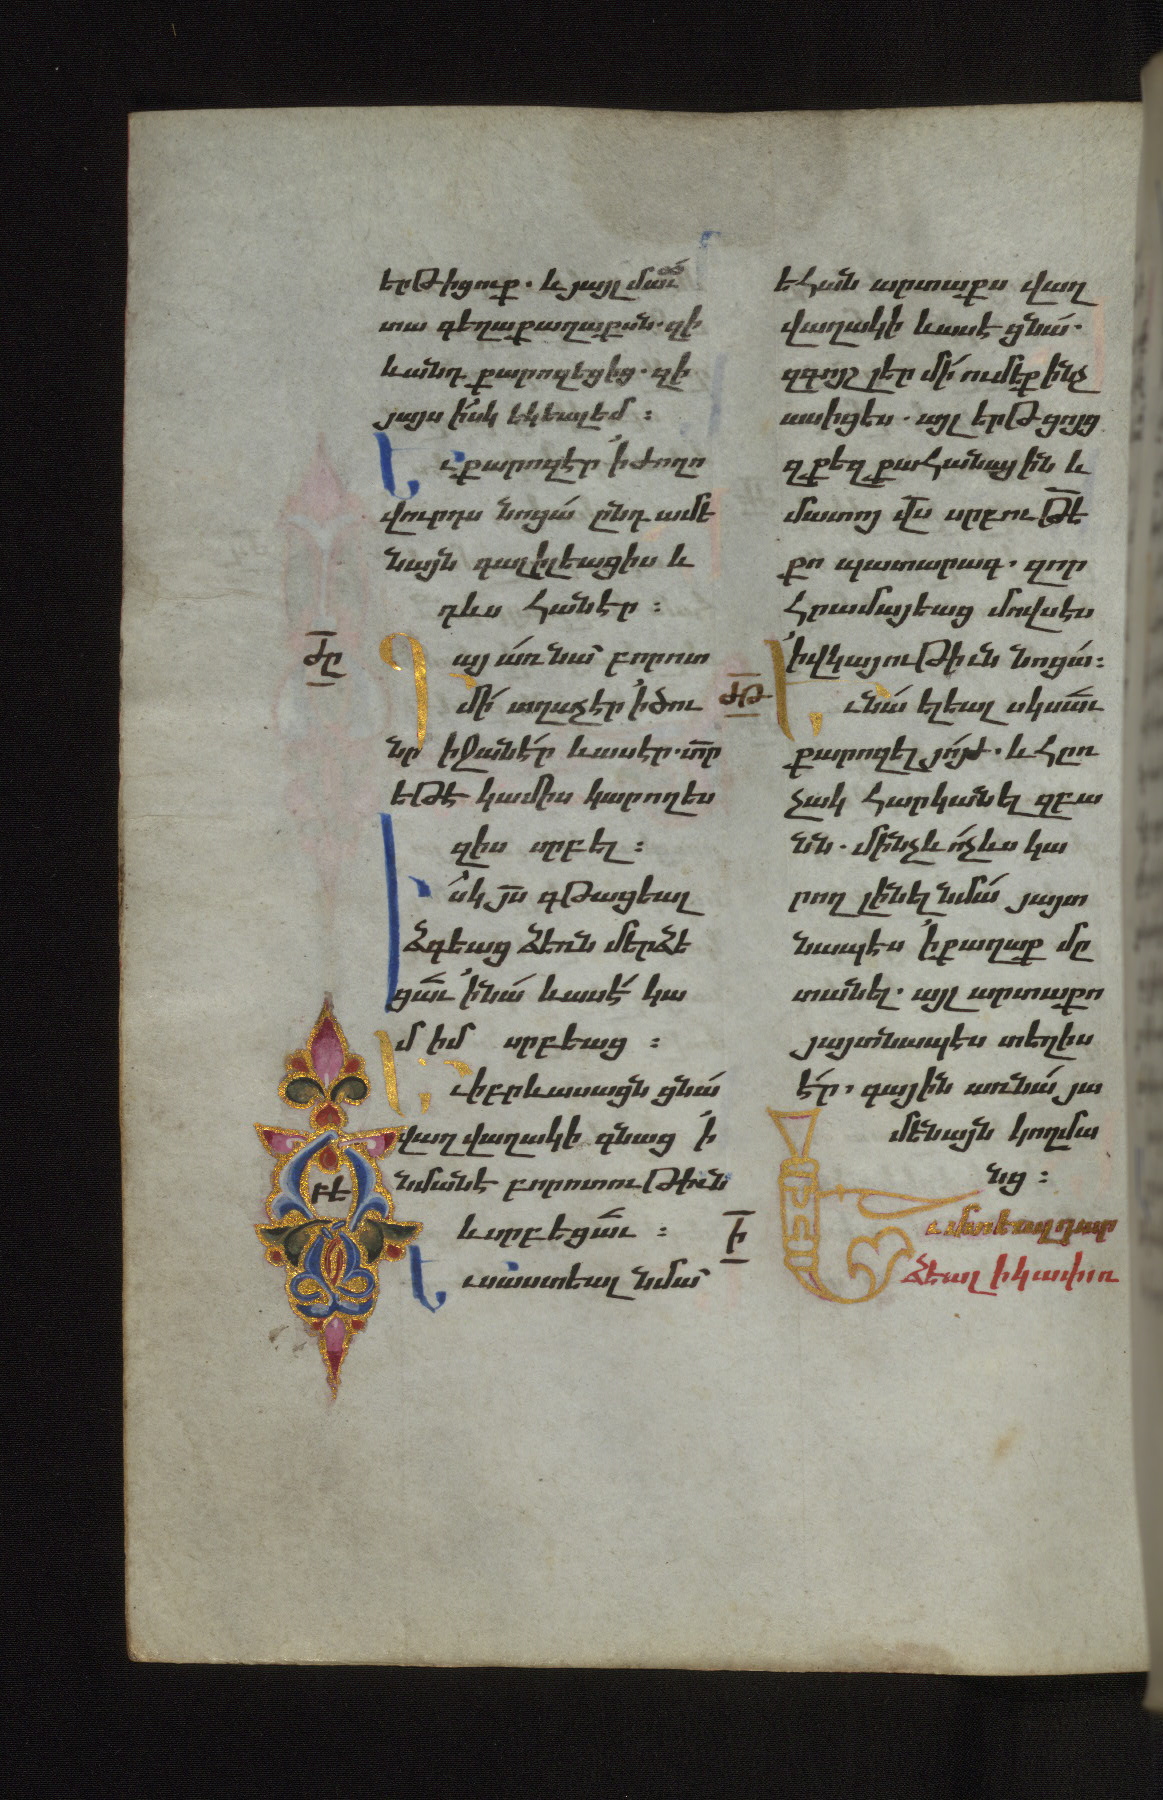 երթիցուք. և յայլ մաւ
տա գեղաքաղաքսն. զի
և անդ քարոզեցից. զի
յայս իսկ եկեալ եմ ։
Եւ քարոզէր ՛ի ժողո
վուրդս նոցա ընդ ամե
նայն գալիլեացիս և
դևս հանէր ։
ԺԸ
Գայ առ նա բորոտ
մի աղաչէր ՛ի ծու
նր իջանէր և ասէր. տր
եթէ կամիս կարող ես
զիս սրբել ։
Իսկ յս գթացեալ
ձգեաց ձեռն մերձե
ցաւ ՛ի նա և ասէ կա
մ իմ սրբեաց ։
Եւ իբրև ասացն ցնա
վաղվաղակի գնաց ՛ի
նմանէ բորոտութիւն
և սրբեցաւ ։
Եւ սաստեալ նմա
եհան արտաքս վաղ
վաղակի և ասէ ցնա.
զգոյշ լեր մի ումեք ինչ
ասիցես. այլ երթ ցոյց
զքեզ քահանային և
մատո վս սրբութե
քո պատարագ. զոր
հրամայեաց մովսէս
՛ի վկայութիւն նոցա։
ԺԹ
Եւ նա ելեալ սկսաւ
քարոզել յոյժ. և հըռ
չակ հարկանել զբա
նն. մինչև ոչ ևս կա
րող լինել նմա յայտ
նապէս ՛ի քաղաք մը
տանել. այլ արտաքո
յայտնապէս տեղիս
էր. գային առ նա յա
մենայն կողմա
նց ։
Ի
Եւ մտեալ դար
ձեալ ի կափառ